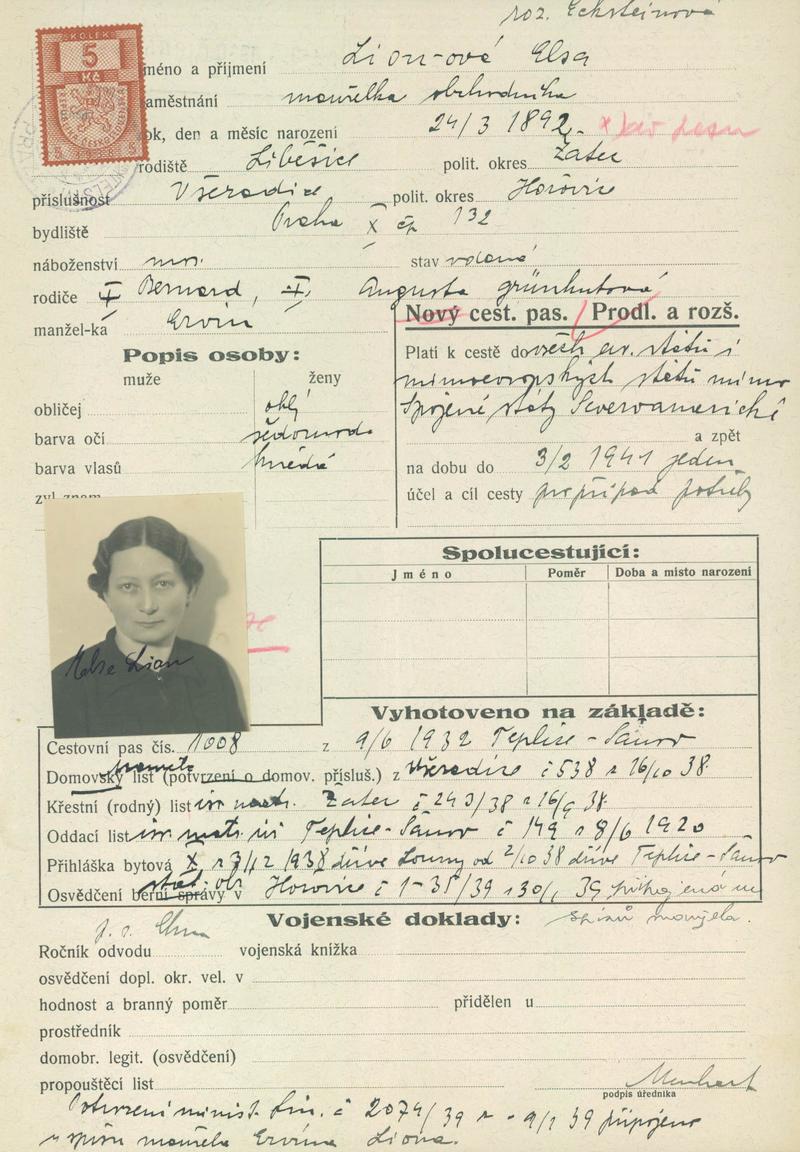 roz. Ecksteinová
KOLEK
5
Kč
jméno a příjmení Lion-ová Elsa
zaměstnání manželka obchodníka
rok, den a měsíc narození 24/3 1892.
rodiště Liběšice polit. okres Žatec
příslušnost Všeradice polit. okres Hořovice
bydliště Praha X čp 132
náboženství mos. stav vdaná
rodiče Bernard, Augusta Grünhutová
manžel-ka Ervín
Nový cest. pas. / Prodl. a rozš.
Popis osoby:
muže ženy
obličej oblý
barva očí šedomodr
barva vlasů hnědá
zvl. znam.
Platí k cestě do všech ev. států i
mimoevropských států mimo
Spojené státy Severoamerické
a zpět
na dobu do 3/2 1941 jeden
účel a cíl cesty pro případ potřeby
Else Lion
Spolucestující:
Jméno Poměr Doba a místo narození
Vyhotoveno na základě:
Cestovní pas čís. 1008 z 9/6 1932 Teplice-Šanov
Domovský list (potvrzení o domov. přísluš.) z Všeradice č 538 z 16/10 38.
Křestní (rodný) list isr. matr. Žatec č 243/38 z 16/9 38.
Oddací list isr. matr. úř Teplice-Šanov č 149 z 8/6 1920
Přihláška bytová X z 7/12 1938 dříve Louny od 2/10 38 dříve Teplice-Šanov
Osvědčení berní správy v stát. obč. Hořovice č 1-35/39 z 30/1 39 připojena ve
spisů manžela.
Vojenské doklady:
Ročník odvodu vojenská knížka
osvědčení dopl. okr. vel. v
hodnost a branný poměr přidělen u
prostředník
domobr. legit. (osvědčení)
propouštěcí list
podpis úředníka
Potvrzení minist. fin. č 2074/39 z 9/1 39 připojeno
u spisu manžela Ervína Liona.